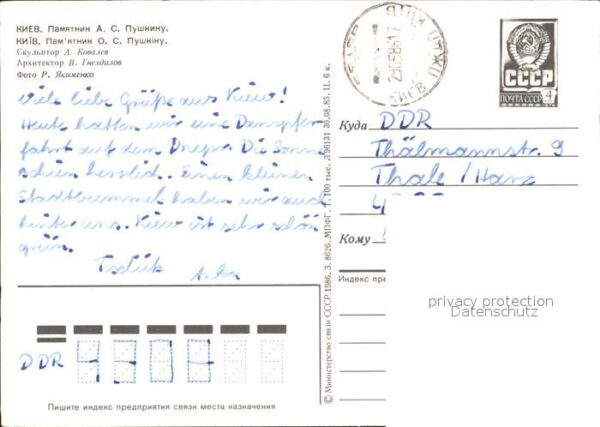 КИЕВ. Памятник А. С. Пушкину.
КИЇВ. Пам'ятник О. С. Пушкіну.
Скульптор А. Ковалев
Архитектор В. Гнездилов
Фото Р. Якименко
Viele liebe Grüße aus Kiew!
Heute hatten wir eine Dampfer-
fahrt auf dem Dnepr. Die Sonne
schien herrlich. Einen kleinen
Stadtbummel haben wir auch
hinter uns. Kiew ist sehr schön
grün.
Tschüß
DDR
Пишите индекс предприятия связи места назначения
© Министерство связи СССР. 1986. З. 8626. МПФГ. т. 100 тыс. Л96131 30.08.85. Ц. 6 к.
КИЕВ
СССР
ПОЧТА СССР
4
Куда DDR
Thälmannstr. 9
Thale / Harz
4
Кому
Индекс пре
privacy protection
Datenschutz